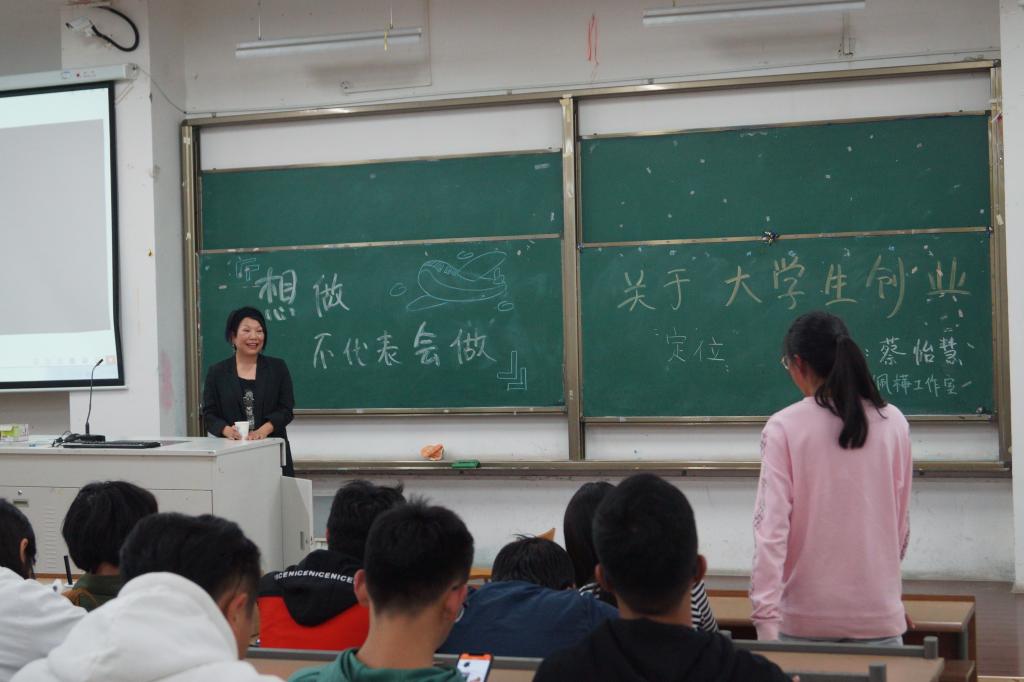 想做
不代表会做
关于大学生创业
定位
蔡怡慧
工作室
ENICENICENICE